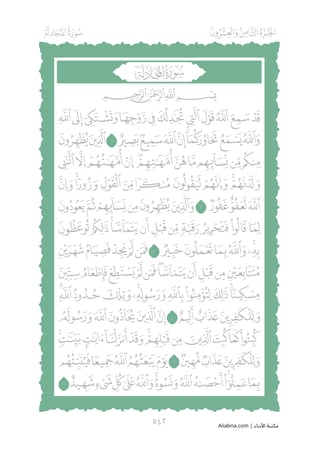 الجُزْءُ الثَّامِنُ وَالعِشْرُونَ
سُورَةُ المُجَادلَةِ
سُورَةُ المُجَادلَةِ
بِسْمِ ٱللَّهِ ٱلرَّحْمَٰنِ ٱلرَّحِيمِ
قَدْ سَمِعَ ٱللَّهُ قَوْلَ ٱلَّتِي تُجَٰدِلُكَ فِي زَوْجِهَا وَتَشْتَكِيٓ إِلَى ٱللَّهِ
وَٱللَّهُ يَسْمَعُ تَحَاوُرَكُمَآ إِنَّ ٱللَّهَ سَمِيعٌۢ بَصِيرٌ ٱلَّذِينَ يُظَٰهِرُونَ
مِنكُم مِّن نِّسَآئِهِم مَّا هُنَّ أُمَّهَٰتِهِمْ إِنْ أُمَّهَٰتُهُمْ إِلَّا ٱلَّٰٓـِٔي
وَلَدْنَهُمْ وَإِنَّهُمْ لَيَقُولُونَ مُنكَرًا مِّنَ ٱلْقَوْلِ وَزُورًا وَإِنَّ
ٱللَّهَ لَعَفُوٌّ غَفُورٌ وَٱلَّذِينَ يُظَٰهِرُونَ مِن نِّسَآئِهِمْ ثُمَّ يَعُودُونَ
لِمَا قَالُوا۟ فَتَحْرِيرُ رَقَبَةٍ مِّن قَبْلِ أَن يَتَمَآسَّا ذَٰلِكُمْ تُوعَظُونَ
بِهِۦ وَٱللَّهُ بِمَا تَعْمَلُونَ خَبِيرٌ فَمَن لَّمْ يَجِدْ فَصِيَامُ شَهْرَيْنِ
مُتَتَابِعَيْنِ مِن قَبْلِ أَن يَتَمَآسَّا فَمَن لَّمْ يَسْتَطِعْ فَإِطْعَامُ سِتِّينَ
مِسْكِينًا ذَٰلِكَ لِتُؤْمِنُوا۟ بِٱللَّهِ وَرَسُولِهِۦ وَتِلْكَ حُدُودُ ٱللَّهِ
وَلِلْكَٰفِرِينَ عَذَابٌ أَلِيمٌ إِنَّ ٱلَّذِينَ يُحَآدُّونَ ٱللَّهَ وَرَسُولَهُۥ
كُبِتُوا۟ كَمَا كُبِتَ ٱلَّذِينَ مِن قَبْلِهِمْ وَقَدْ أَنزَلْنَآ ءَايَٰتٍۭ بَيِّنَٰتٍ
وَلِلْكَٰفِرِينَ عَذَابٌ مُّهِينٌ يَوْمَ يَبْعَثُهُمُ ٱللَّهُ جَمِيعًا فَيُنَبِّئُهُم
بِمَا عَمِلُوٓا۟ أَحْصَىٰهُ ٱللَّهُ وَنَسُوهُ وَٱللَّهُ عَلَىٰ كُلِّ شَيْءٍ شَهِيدٌ
٥٤٢
مكتبة الأبناء | Aliabna.com